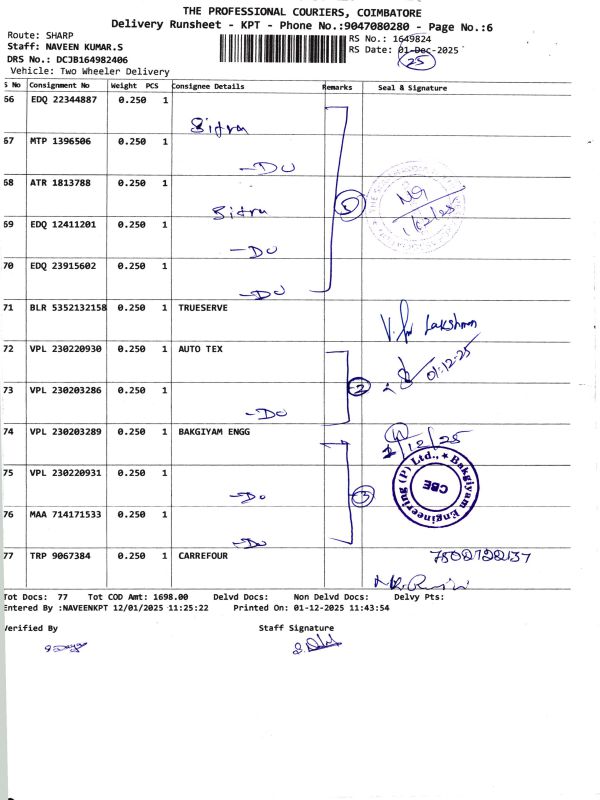 THE PROFESSIONAL COURIERS, COIMBATORE
Delivery Runsheet - KPT - Phone No.:9047080280 - Page No.:6
Route: SHARP
RS No.: 1649824
Staff: NAVEEN KUMAR.S
RS Date: 01-Dec-2025
DRS No.: DCJB164982406
25
Vehicle: Two Wheeler Delivery
S No Consignment No Weight PCS Consignee Details Remarks Seal & Signature
66 EDQ 22344887 0.250 1 Sitra
67 MTP 1396506 0.250 1 -DO
68 ATR 1813788 0.250 1 Sitra
5
1/12/25
69 EDQ 12411201 0.250 1 -DO
70 EDQ 23915602 0.250 1 -DO
71 BLR 5352132158 0.250 1 TRUESERVE
Lakshman
72 VPL 230220930 0.250 1 AUTO TEX
01.12.25
73 VPL 230203286 0.250 1 -DO
2
74 VPL 230203289 0.250 1 BAKGIYAM ENGG
1/12/25
Bakgiyam Engineering (P) Ltd., ★
CBE
75 VPL 230220931 0.250 1 -DO
3
76 MAA 714171533 0.250 1 -DO
77 TRP 9067384 0.250 1 CARREFOUR
Tot Docs: 77 Tot COD Amt: 1698.00 Delvd Docs: Non Delvd Docs: Delvy Pts:
Entered By :NAVEENKPT 12/01/2025 11:25:22 Printed On: 01-12-2025 11:43:54
Verified By Staff Signature